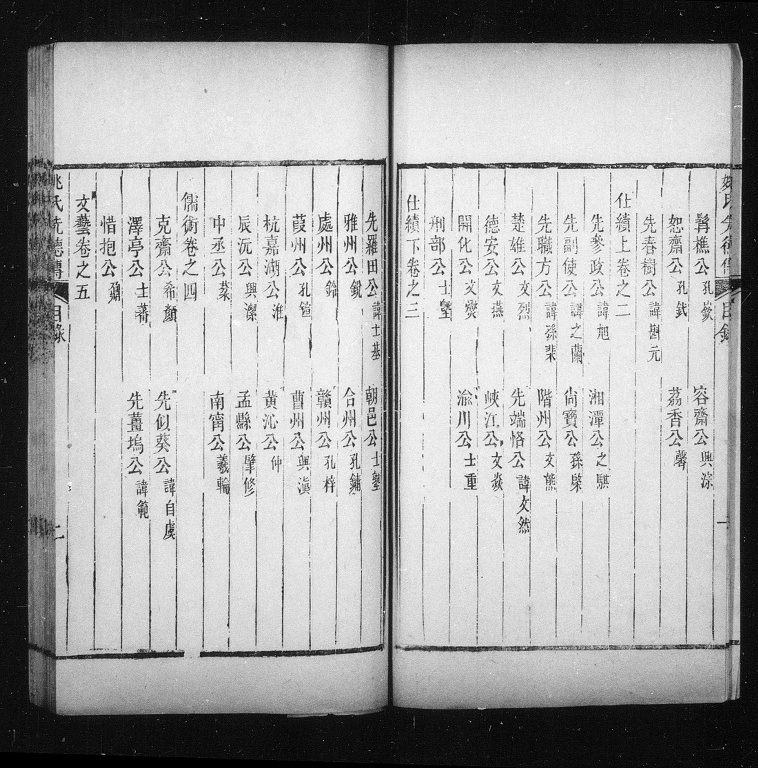 姚氏先德傳 目錄 一
髯樵公孔鋑 容齋公興涂
恕齋公孔鉽 荔香公馨
先春樹公諱樹元
仕績上卷之二
先參政公諱旭 湘潭公之騏
先副使公諱之蘭 尚寶公孫榘
先職方公諱孫棐 階州公文熊
楚雄公文烈 先端恪公諱文然
德安公文燕 峽江公文焱
開化公文燮 渝川公士重
刑部公士塈
仕績下卷之三
先羅田公諱士基 朝邑公士塾
雅州公孔鋭 合州公孔鏞
處州公孔錀 贛州公孔梓
葭州公孔鍹 曹州公興滇
杭嘉湖公淮 黄沁公仲
辰沅公興潔 孟縣公肇修
中丞公棻 南甯公羲輪
儒術卷之四
克齋公希顏 先似葵公諱自虞
澤亭公士藩 先薑塢公諱範
惜抱公鼐
文藝卷之五
姚氏先德傳 目錄 二